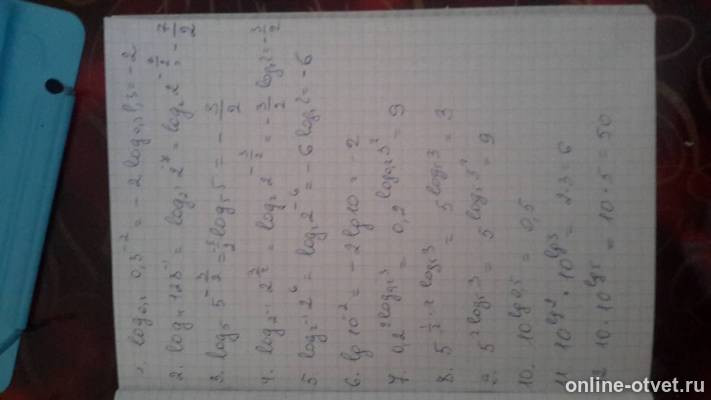 1. log₀,₃ 0,3⁻² = -2 log₀,₃ 0,3 = -2
2. log₄ 128⁻¹ = log₂² 2⁻⁷ = log₂ 2^(-7/2) = -7/2
3. log₅ 5^(-3/2) = -3/2 log₅ 5 = -3/2
4. log₂⁻¹ 2^(3/2) = log₂ 2^(-3/2) = -3/2 log₂ 2 = -3/2
5 log₂⁻¹ 2⁶ = log₂ 2⁻⁶ = -6 log₂ 2 = -6
6. lg 10⁻² = -2 lg 10 = -2
7. 0,2^(2 log₀,₂ 3) = 0,2^(log₀,₂ 3²) = 9
8. 5^(1/2 · 2 log₅ 3) = 5^(log₅ 3) = 3
9. 5^(2 log₅ 3) = 5^(log₅ 3²) = 9
10. 10^(lg 0,5) = 0,5
11 10^(lg 2) · 10^(lg 3) = 2·3 = 6
12 10·10^(lg 5) = 10·5 = 50
online-otvet.ru